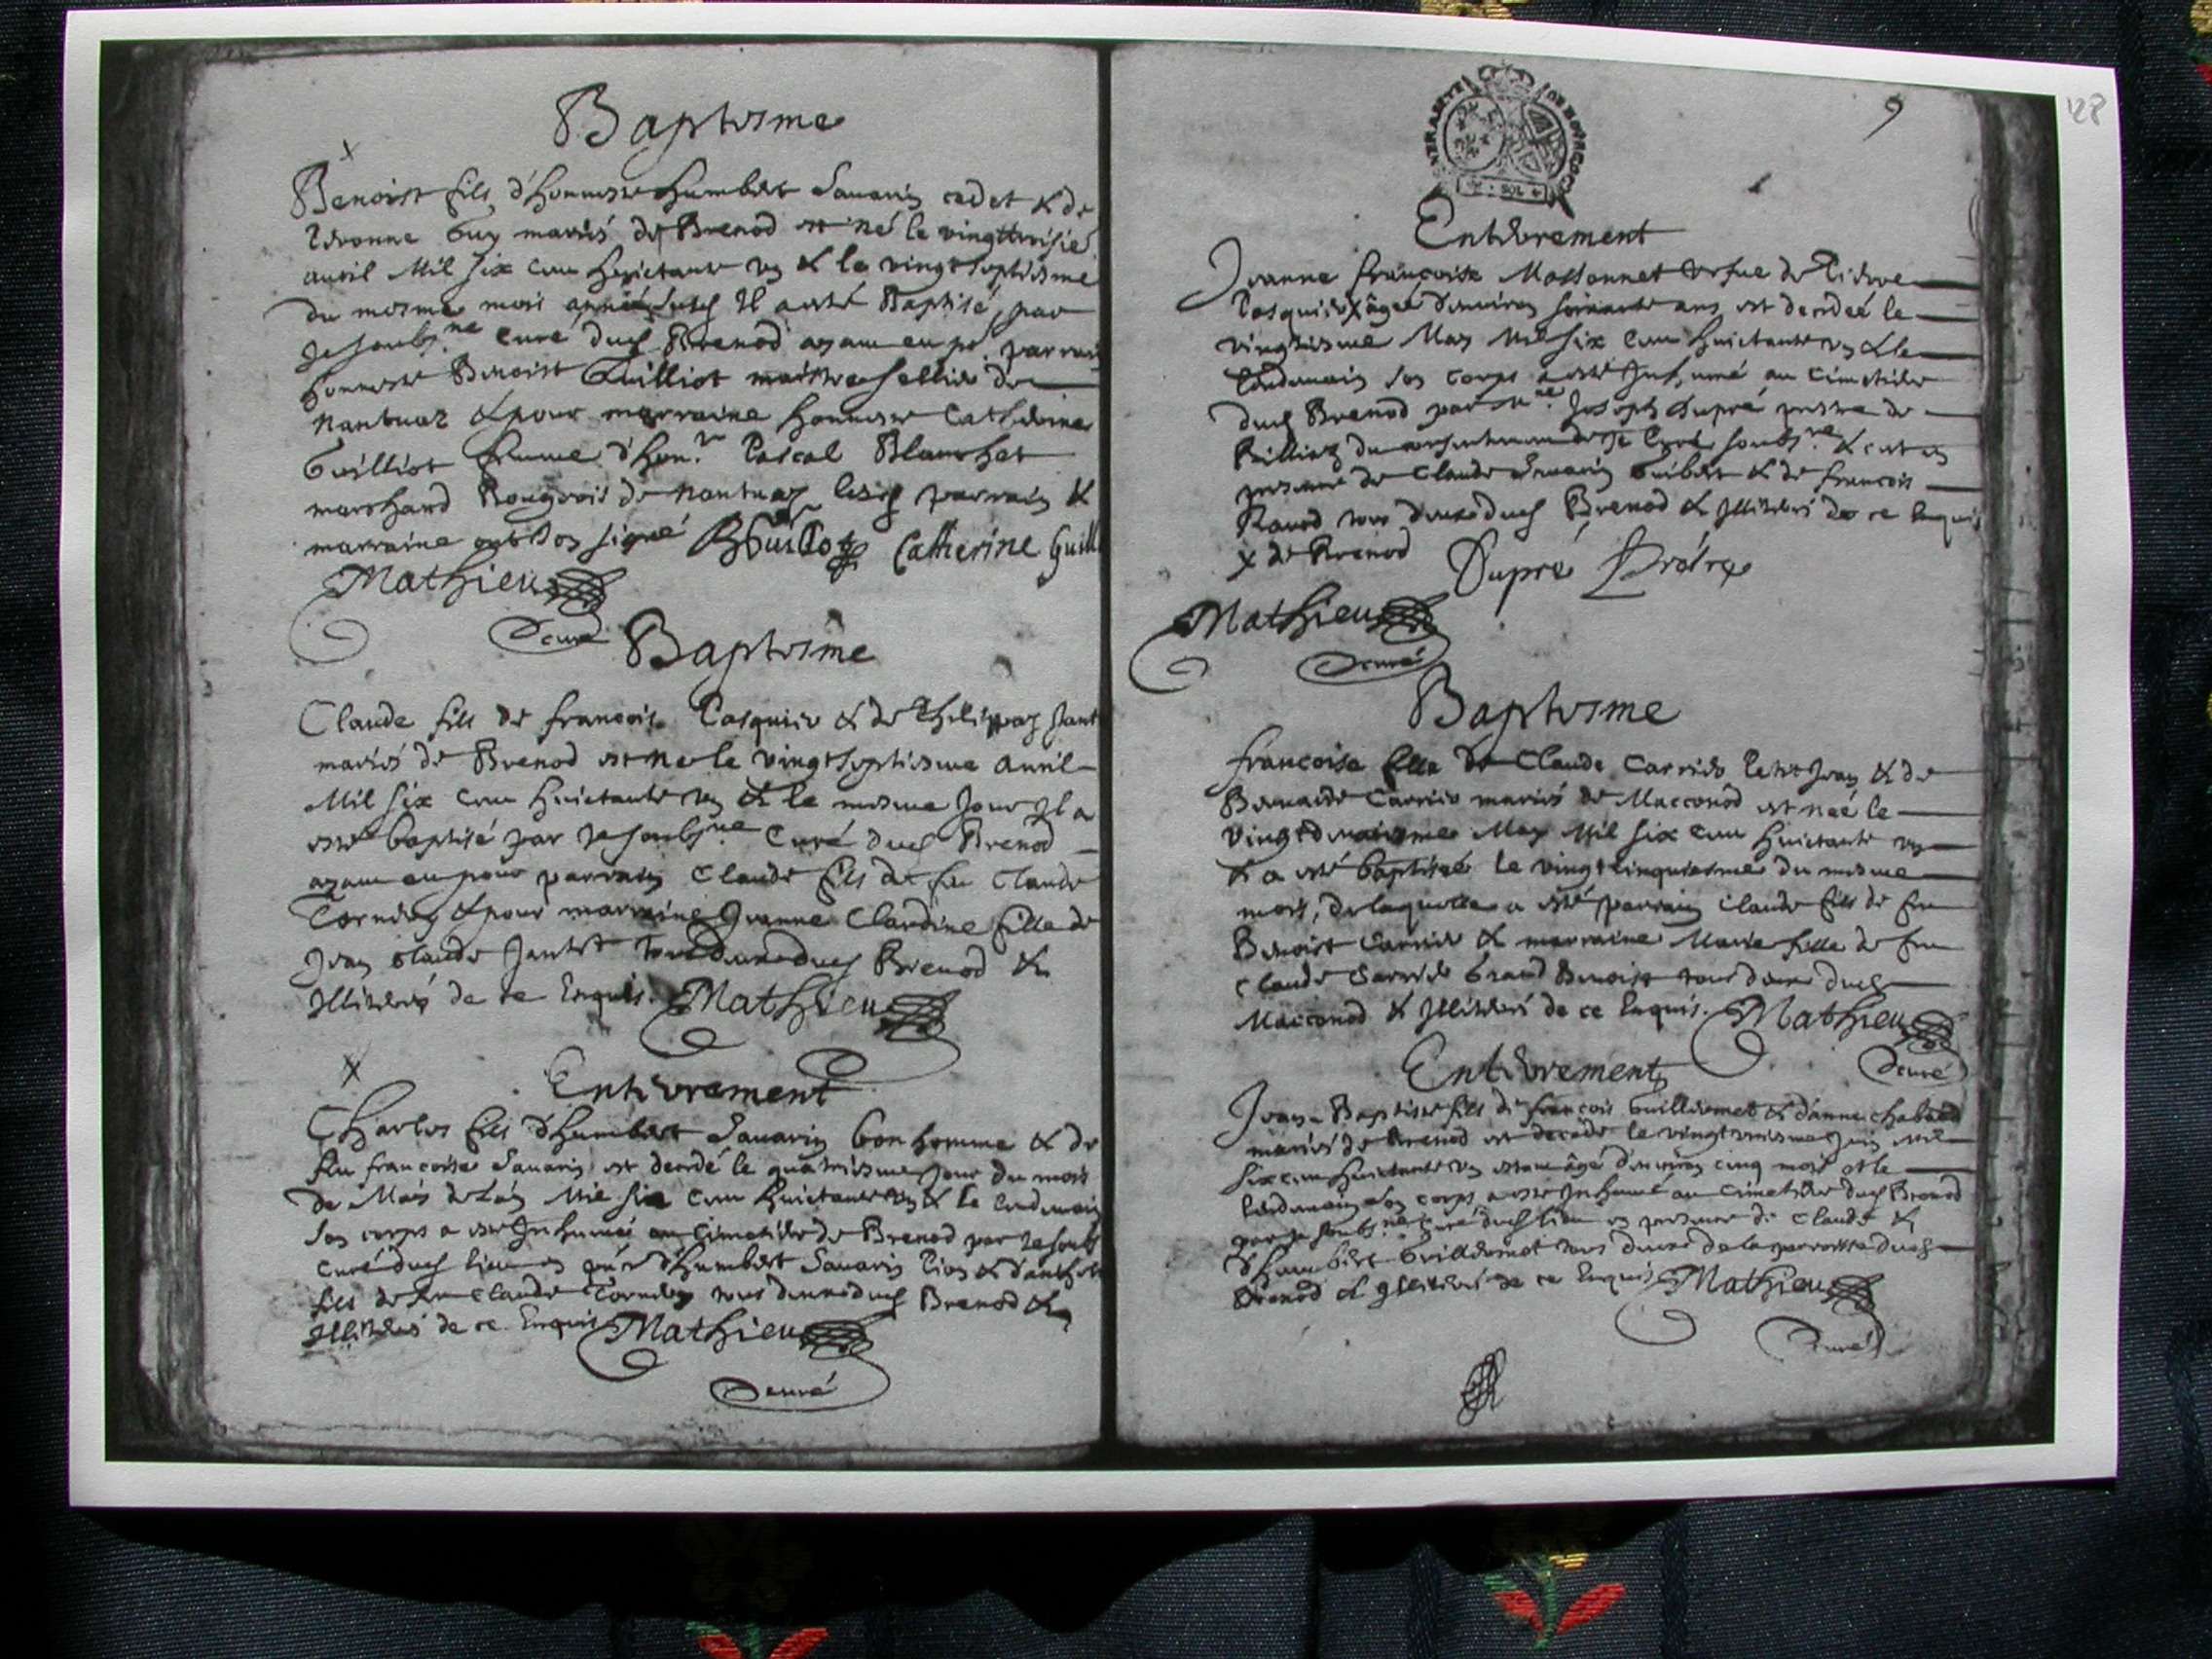 Baptesme
Benoist fils d'honneste humbert Savarin cadet & de
Pieronne Guy mariés de Brenod est né le vingttroisie
avril Mil six cens huictante un & le vingtseptiesme
du mesme mois Il a esté Baptisé par
Je soubs.né Curé dud Brenod ayant eu pr parrain
honneste Benoist Guilliot maistre sellier de
Nantuaz & pour marraine honneste Catherine
Guilliot femme d'hon.e Pascal Blanchet
marchand Bougeois de Nantuaz lesd parrain &
marraine ont signé BGuilliot Catherine Guill
Mathieu
Curé
Baptesme
Claude fils de francois Pasquier & de Philippaz Jant
mariés de Brenod est ne le vingtseptiesme avril
Mil six cens huictante un & le mesme Jour Il a
esté baptisé par Je soubs.né Curé dud Brenod
ayant eu pour parrain Claude fils de feu Claude
Cornier & pour marraine Jeanne Claudine fille de
Jean Claude Jantet tous deux dud Brenod &
Illiterés de ce Enquis. Mathieu
Enterrement
Charles fils d'humbert Savarin bon homme & de
feu francoise Savarin est decedé le quatriesme Jour du mois
de May de l'an Mil six cens huictante un & le lendemain
son corps a esté Inhumé au Cimetiere de Brenod par Je soubs
Curé dud lieu en d'humbert Savarin &
fils de feu Claude Cornier tous deux dud Brenod &
Illiterés de ce Enquis Mathieu
Curé
128
9
SOL
Enterrement
Jeanne francoise Massonnet vefue de Pierre
Pasquier X âgée d'environ soixante ans est decedée le
vingtiesme May Mil six cens huictante un & le
lendemain son corps a esté Inhumé au Cimetiere
dud Brenod par Mre Joseph Dupré prestre de
du consentement de Je Curé soubs.né & c'est en
presence de Claude Savarin Guibert & de francois
Ravod tous deux dud Brenod & Illiterés de ce Enquis
X de Brenod Dupré Prétre
Mathieu
Curé
Baptesme
francoise fille de Claude Carrier Petit Jean & de
Bernarde Carrier mariés de Macconod est neé le
May Mil six cens huictante un
& a esté baptisée le vingtcinquiesme du mesme
mois, de laquelle a esté parrain Claude fils de feu
Benoist Carrier & marraine Marie fille de feu
Claude Carrier Grand Benoist tous deux dud
Macconod & Illiterés de ce Enquis. Mathieu
Curé
Enterrement
Jean-Baptiste fils de francois Guillermet & d'anne Chaband
mariés de Brenod est decedé le Juin Mil
six cens huictante un estant âgé d'environ cinq mois et le
lendemain son corps a esté Inhumé au Cimetiere dud Brenod
par Je soubs.né Curé dud lieu en presence de Claude &
d'humbert Guillermet tous deux de la parroisse dud
Brenod & Illiterés de ce Enquis Mathieu
Curé